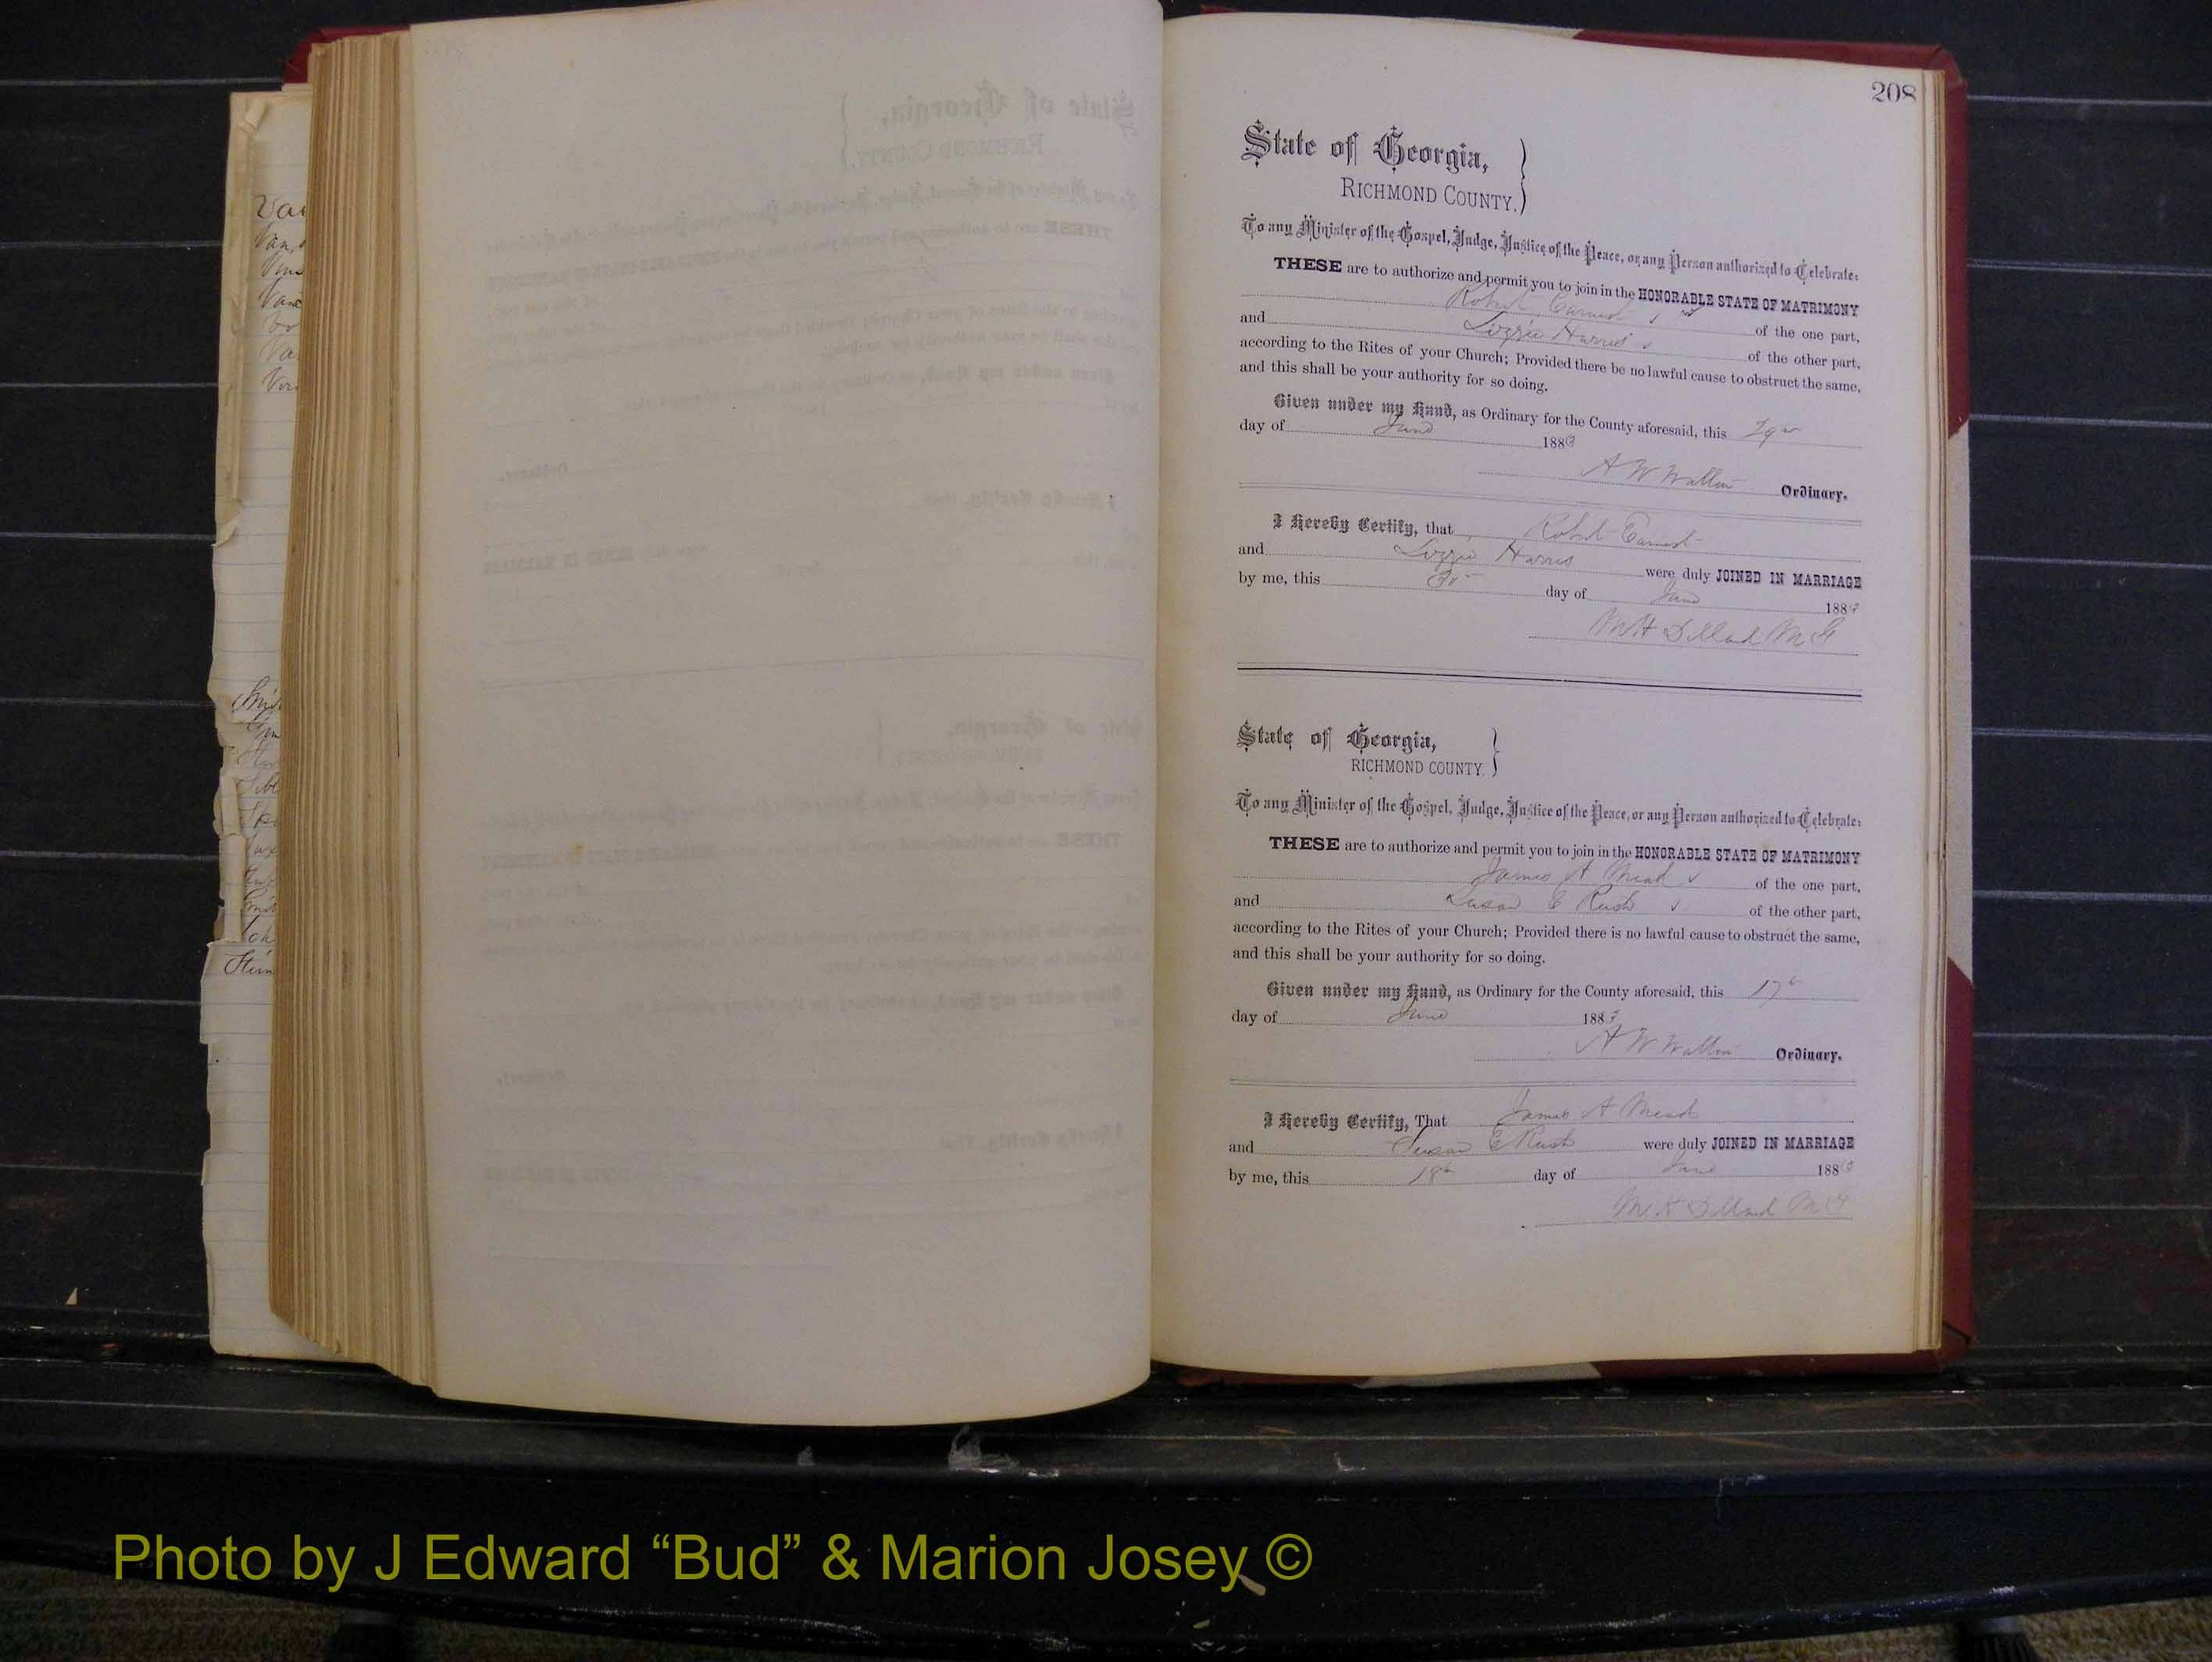 208
State of Georgia,
RICHMOND COUNTY.
To any Minister of the Gospel, Judge, Justice of the Peace, or any Person authorized to Celebrate:
THESE are to authorize and permit you to join in the HONORABLE STATE OF MATRIMONY
Robert of the one part,
and Lizzie Harris of the other part,
according to the Rites of your Church; Provided there be no lawful cause to obstruct the same,
and this shall be your authority for so doing.
Given under my Hand, as Ordinary for the County aforesaid, this 29
day of June 1883
A W Walton Ordinary.
I Hereby Certify, that Robt
and Lizzie Harris were duly JOINED IN MARRIAGE
by me, this 30 day of June 1883
M H Dillard M G
State of Georgia,
RICHMOND COUNTY.
To any Minister of the Gospel, Judge, Justice of the Peace, or any Person authorized to Celebrate:
THESE are to authorize and permit you to join in the HONORABLE STATE OF MATRIMONY
James A Mead of the one part,
and Susan E Rush of the other part,
according to the Rites of your Church; Provided there is no lawful cause to obstruct the same,
and this shall be your authority for so doing.
Given under my Hand, as Ordinary for the County aforesaid, this 17th
day of June 1883
A W Walton Ordinary.
I Hereby Certify, That James A Mead
and Susan E Rush were duly JOINED IN MARRIAGE
by me, this 18th day of June 1883
M H Dillard M G
Photo by J Edward “Bud” & Marion Josey ©